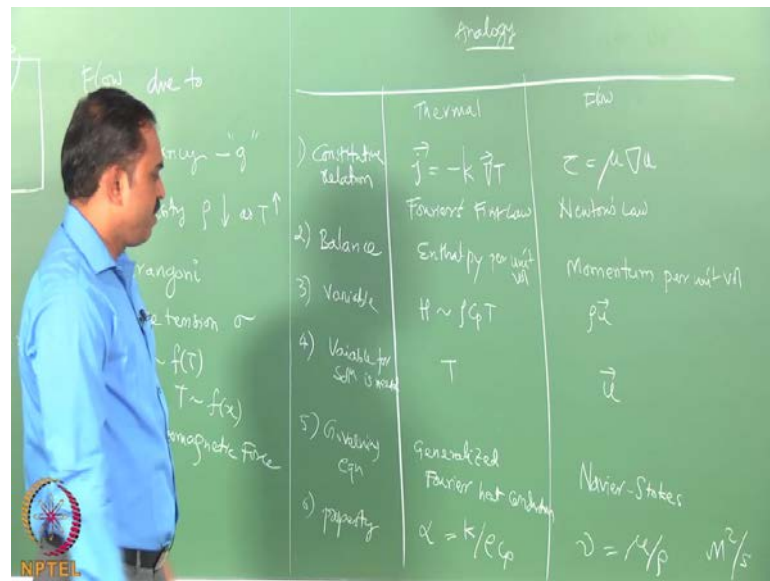 Analogy
Flow due to
"g"
ρ ↓ as T ↑
tension σ
~ f(T)
T ~ f(x)
Force
Thermal
Flow
1) Constitutive relation
j⃗ = -k ∇⃗T
τ = μ∇u
Fourier's First Law
Newton's Law
2) Balance
Enthalpy per unit vol
Momentum per unit vol
3) Variable
H ~ ρCpT
ρu⃗
4) Variable for
T
u⃗
5) Governing Eqn
Generalized
Fourier heat conduction
Navier-Stokes
6) property
α = k/ρcp
ν = μ/ρ
M²/s
NPTEL